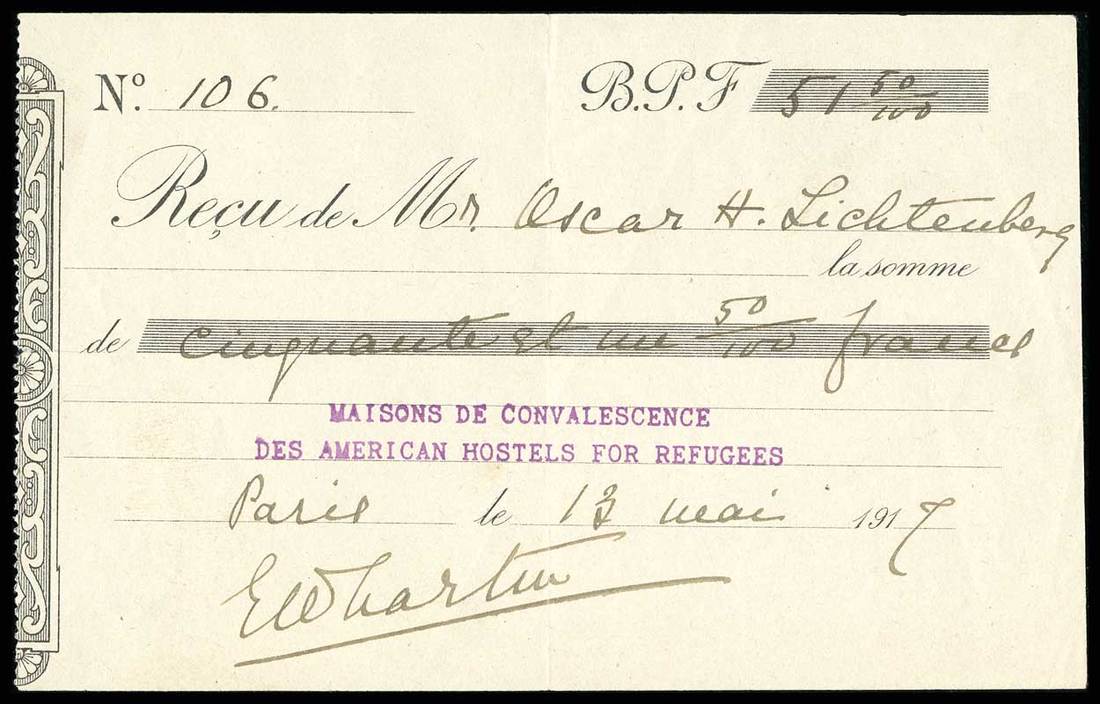 Nº. 106. B.P.F 51 50/100
Reçu de Mr. Oscar H. Lichtenberg
la somme
de cinquante et un 50/100 francs
MAISONS DE CONVALESCENCE
DES AMERICAN HOSTELS FOR REFUGEES
Paris le 13 mai 1917
EWharton